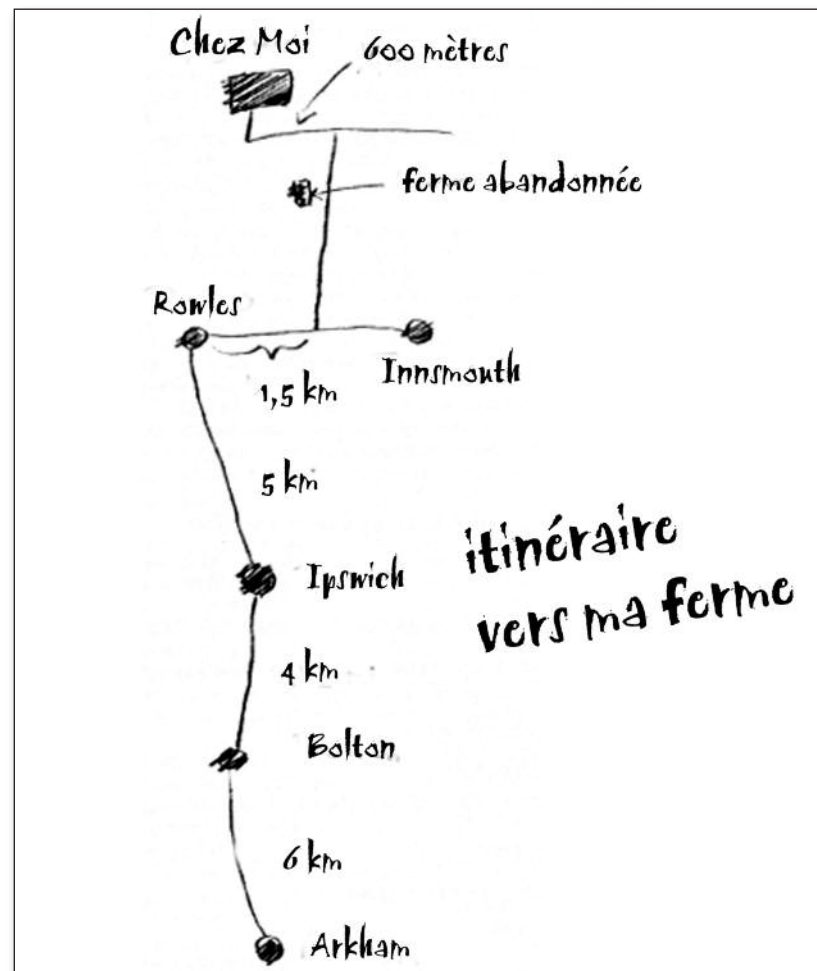 Chez Moi
600 mètres
ferme abandonnée
Rowles
Innsmouth
1,5 km
5 km
itinéraire
vers ma ferme
Ipswich
4 km
Bolton
6 km
Arkham